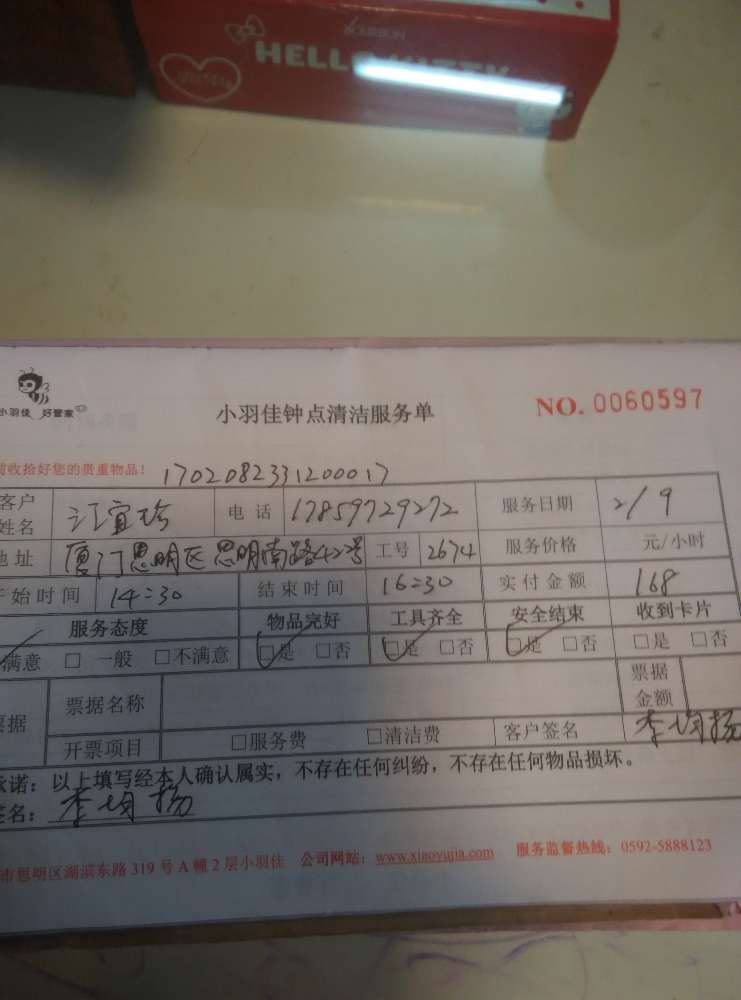 BOURBON
HELLO KITTY
小羽佳 好管家
小羽佳钟点清洁服务单
NO. 0060597
收拾好您的贵重物品! 1702082331200017
客户姓名 江宜珍 电话 17859729272 服务日期 2/9
地址 厦门思明区思明南路42号 工号 2674 服务价格 元/小时
开始时间 14:30 结束时间 16:30 实付金额 168
服务态度 物品完好 工具齐全 安全结束 收到卡片
满意 □ 一般 □不满意 □是 □否 □是 □否 □是 □否 □是 □否
票据 票据名称 票据金额
开票项目 □服务费 □清洁费 客户签名 李均扬
承诺:以上填写经本人确认属实,不存在任何纠纷,不存在任何物品损坏。
签名: 李均扬
市思明区湖滨东路 319 号 A 幢 2 层小羽佳 公司网站:www.xiaoyujia.com 服务监督热线:0592-5888123